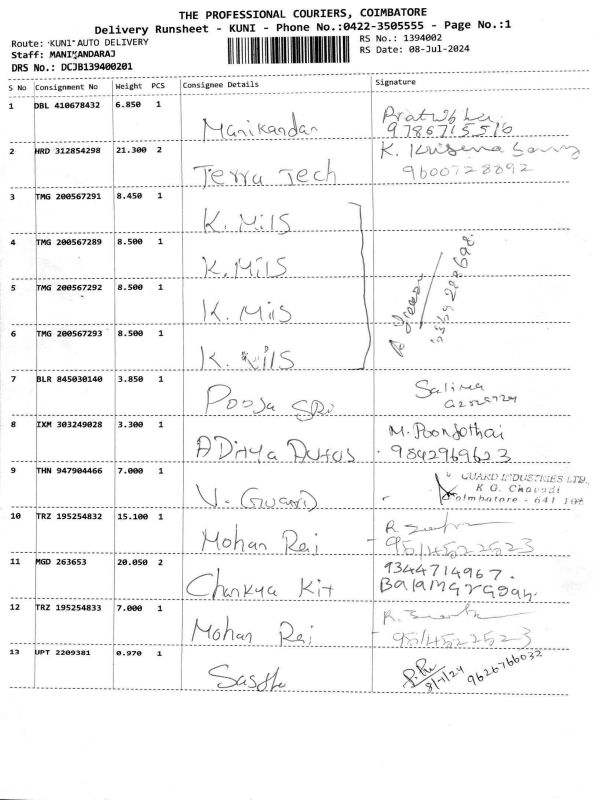 THE PROFESSIONAL COURIERS, COIMBATORE
Delivery Runsheet - KUNI - Phone No.:0422-3505555 - Page No.:1
Route: 'KUNI' AUTO DELIVERY
RS No.: 1394002
Staff: MANIKANDARAJ
RS Date: 08-Jul-2024
DRS No.: DCJB139400201
S No Consignment No Weight PCS Consignee Details Signature
1 DBL 410678432 6.850 1 Manikandan
9786715516
2 HRD 312854298 21.300 2 Terra Tech K. Krisena Samy
9600728892
3 TMG 200567291 8.450 1 K. Mils
4 TMG 200567289 8.500 1 K. Mils
5 TMG 200567292 8.500 1 K. Mils
6 TMG 200567293 8.500 1 K. Mils
7 BLR 845030140 3.850 1 Pooja Sri Salima
8 IXM 303249028 3.300 1 ADitya Autos M. Poonjothai
9842969623
9 THN 947904466 7.000 1 U. Guard GUARD INDUSTRIES LTD.,
K G. Chavadi
Coimbatore - 641 105
10 TRZ 195254832 15.100 1 Mohan Raj R.
9514522523
11 MGD 263653 20.050 2 Chankya Kit 9344714967.
Balamurugan.
12 TRZ 195254833 7.000 1 Mohan Raj R.
9514522523
13 UPT 2209381 0.970 1 8/7/24 9626766032